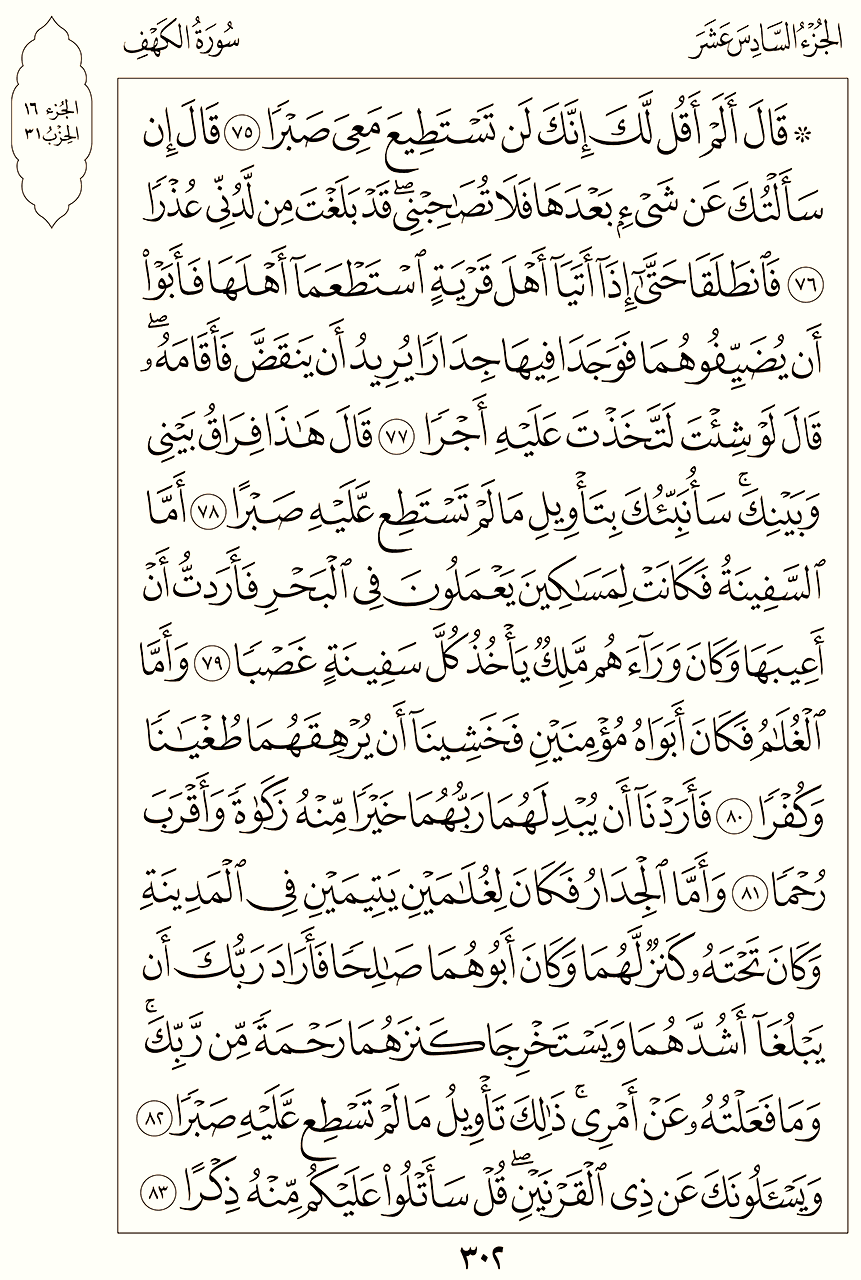 الجُزْءُ السَّادِسَ عَشَرَ
سُورَةُ الكَهْفِ
الجُزء ١٦
الحِزْبُ ٣١
۞ قَالَ أَلَمْ أَقُل لَّكَ إِنَّكَ لَن تَسْتَطِيعَ مَعِىَ صَبْرًا ٧٥ قَالَ إِن
سَأَلْتُكَ عَن شَىْءٍۭ بَعْدَهَا فَلَا تُصَـٰحِبْنِىۖ قَدْ بَلَغْتَ مِن لَّدُنِّى عُذْرًا
٧٦ فَٱنطَلَقَا حَتَّىٰٓ إِذَآ أَتَيَآ أَهْلَ قَرْيَةٍ ٱسْتَطْعَمَآ أَهْلَهَا فَأَبَوْا۟
أَن يُضَيِّفُوهُمَا فَوَجَدَا فِيهَا جِدَارًا يُرِيدُ أَن يَنقَضَّ فَأَقَامَهُۥۖ
قَالَ لَوْ شِئْتَ لَتَّخَذْتَ عَلَيْهِ أَجْرًا ٧٧ قَالَ هَـٰذَا فِرَاقُ بَيْنِى
وَبَيْنِكَۚ سَأُنَبِّئُكَ بِتَأْوِيلِ مَا لَمْ تَسْتَطِع عَّلَيْهِ صَبْرًا ٧٨ أَمَّا
ٱلسَّفِينَةُ فَكَانَتْ لِمَسَـٰكِينَ يَعْمَلُونَ فِى ٱلْبَحْرِ فَأَرَدتُّ أَنْ
أَعِيبَهَا وَكَانَ وَرَآءَهُم مَّلِكٌ يَأْخُذُ كُلَّ سَفِينَةٍ غَصْبًا ٧٩ وَأَمَّا
ٱلْغُلَـٰمُ فَكَانَ أَبَوَاهُ مُؤْمِنَيْنِ فَخَشِينَآ أَن يُرْهِقَهُمَا طُغْيَـٰنًا
وَكُفْرًا ٨٠ فَأَرَدْنَآ أَن يُبْدِلَهُمَا رَبُّهُمَا خَيْرًا مِّنْهُ زَكَوٰةً وَأَقْرَبَ
رُحْمًا ٨١ وَأَمَّا ٱلْجِدَارُ فَكَانَ لِغُلَـٰمَيْنِ يَتِيمَيْنِ فِى ٱلْمَدِينَةِ
وَكَانَ تَحْتَهُۥ كَنزٌ لَّهُمَا وَكَانَ أَبُوهُمَا صَـٰلِحًا فَأَرَادَ رَبُّكَ أَن
يَبْلُغَآ أَشُدَّهُمَا وَيَسْتَخْرِجَا كَنزَهُمَا رَحْمَةً مِّن رَّبِّكَۚ
وَمَا فَعَلْتُهُۥ عَنْ أَمْرِىۚ ذَٰلِكَ تَأْوِيلُ مَا لَمْ تَسْطِع عَّلَيْهِ صَبْرًا ٨٢
وَيَسْـَٔلُونَكَ عَن ذِى ٱلْقَرْنَيْنِۖ قُلْ سَأَتْلُوا۟ عَلَيْكُم مِّنْهُ ذِكْرًا ٨٣
٣٠٢